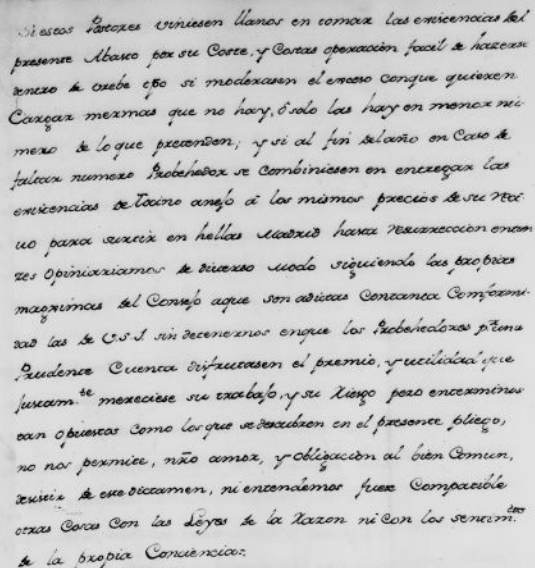 Si estos Postores viniesen llanos en tomar las existencias del
presente Abasto por su Coste, y Costas operación facil de hazerse
dentro de vrebe tpô si moderasen el exceso conque quieren
Cargar mermas que no hay, ô solo las hay en menor nu-
mero de lo que pretenden; y si al fin del año en Caso de
faltar numero Probehedor se combiniesen en entregar las
existencias de Tocino anejo â los mismos precios de su
uo para surtir en hellas Madrid hasta Resurreccion enton
zes Opinariamos de diverso modo siguiendo las propias
magximas del Consejo aque son adictas Contanta Comformi-
dad las de V.S.I. sin detenernos enque los Probehedores pr una
Prudente Cuenta disfrutasen el premio, y utilidad que
justam.te mereciese su trabajo, y su Riesgo pero enterminos
tan opuestos como los que se descubren en el presente pliego,
no nos permite, nrô amor, y obligación al bien Comun,
desistir de este dictamen, ni entendemos fuere Compatible
otras Cosas Con las Leyes de la Razon ni con los sentim.tos
de la propia Conciencia.